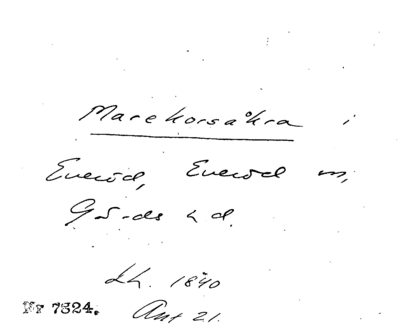 Marekorsåkra i
Everöd, Everöd sn,
Gärds hd.
Lh. 1840
Nr 7324. Ant 21.